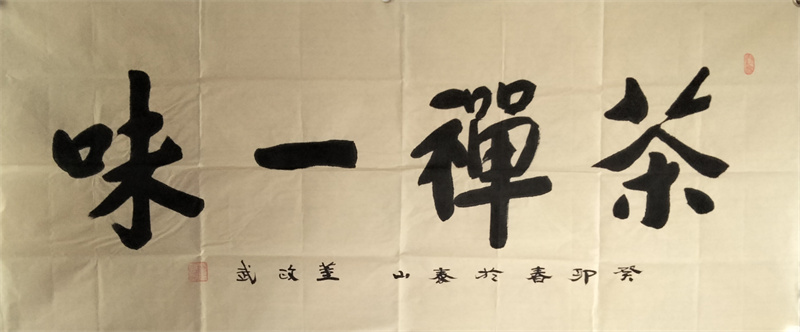 茶禪一味
癸卯春於泰山 姜政武